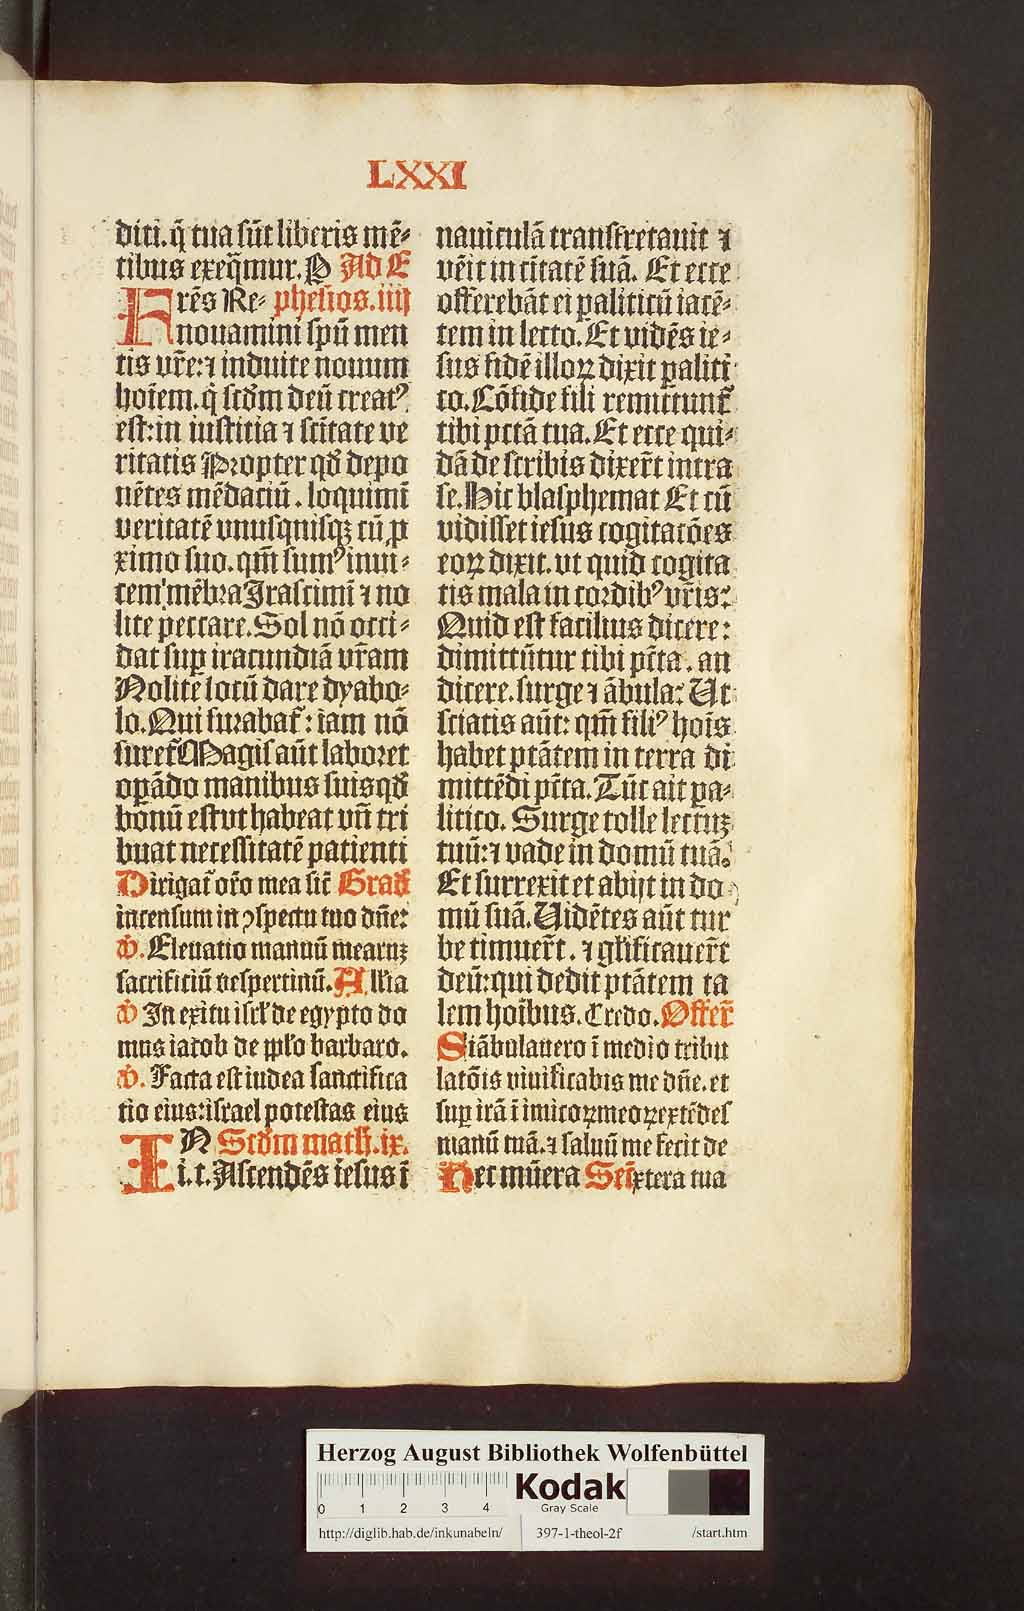 LXXI
diti. q̄ tua sūt liberis mē-
tibus exeq̄mur. P Ad E
Frēs Re- phesios. iiij
nouamini spū men
tis vr̄e: ⁊ induite nouum
hoīem. q̇ scd̄m deū creatꝰ
est: in iustitia ⁊ scītate ve
ritatis Propter qd̄ depo
nētes mēdaciū. loquimī
veritatē vnusquisqꝫ cū ꝓ
ximo suo. qm̄ sumꝰ inui-
cem mēbra Irascimī ⁊ no
lite peccare. Sol nō occi-
dat suꝑ iracundiā vr̄am
Nolite locū dare dyabo-
lo. Qui furabat᷑: iam nō
furet᷑ Magis aūt laboret
oꝑādo manibus suis qd̄
bonū est vt habeat vn̄ tri
buat necessitatē patienti
Dirigat᷑ or̄o mea sic̄ Grad̄
incensum in ꝯspectu tuo dn̄e:
v̄. Eleuatio manuū mearuꝫ
sacrificiū vespertinū. Allīa
v̄ In exitu isrl̄ de egypto do
mus iacob de pplo barbaro.
v̄. Facta est iudea sanctifica
tio eius: israel potestas eius
IN Scd̄m math̄. ix.
i. t. Ascendēs iesus ī
nauiculā transfretauit ⁊
vēit in ciītatē suā. Et ecce
offerebāt ei ꝑaliticū iacē-
tem in lecto. Et vidēs ie-
sus fidē illoꝝ dixit ꝑaliti
co. Cōfide fili remittunt᷑
tibi pctā tua. Et ecce qui-
dā de scribis dixer̄t intra
se. Hic blasphemat Et cū
vidisset iesus cogitatōes
eoꝝ dixit. vt quid cogita
tis mala in cordibꝰ vr̄is:
Quid est facilius dicere:
dimittūtur tibi pctā. an
dicere. surge ⁊ ābula: Ut
sciatis aūt: qm̄ filiꝰ hoīs
habet ptātem in terra di
mittēdi pctā. Tūc ait ꝑa-
litico. Surge tolle lectuꝫ
tuū: ⁊ vade in domū tuā.
Et surrexit et abijt in do
mū suā. Uidētes aūt tur
be timuer̄t. ⁊ glīficauer̄t
deū: qui dedit ptātem ta
lem hoībus. Credo. Offer̄
Si ābulauero ī medio tribu
latōis viuificabis me dn̄e. et
suꝑ irā īimicoꝝ meoꝝ extēdes
manū tuā. ⁊ saluū me fecit de
Hec mūera Secī xtera tua
Herzog August Bibliothek Wolfenbüttel
0 1 2 3 4
Kodak
Gray Scale
http://diglib.hab.de/inkunabeln/ 397-1-theol-2f /start.htm